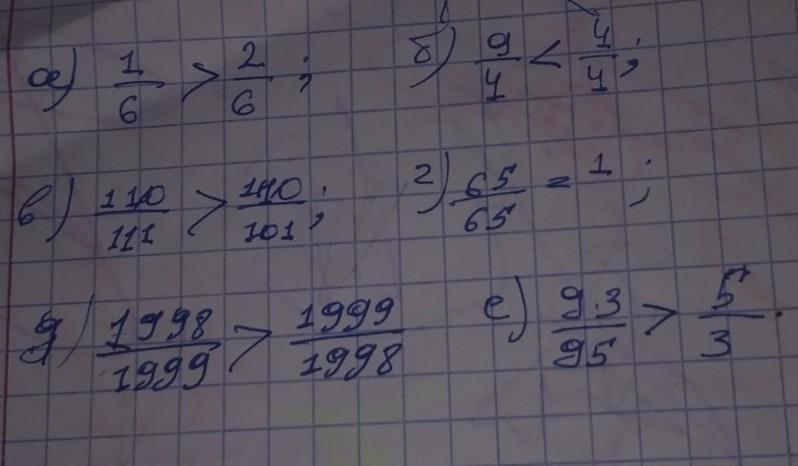 а) 1/6 > 2/6 ; б) 9/4 < 4/4 ;
в) 110/111 > 110/101 ; г) 65/65 = 1 ;
д) 1998/1999 > 1999/1998 е) 93/95 > 5/3 .